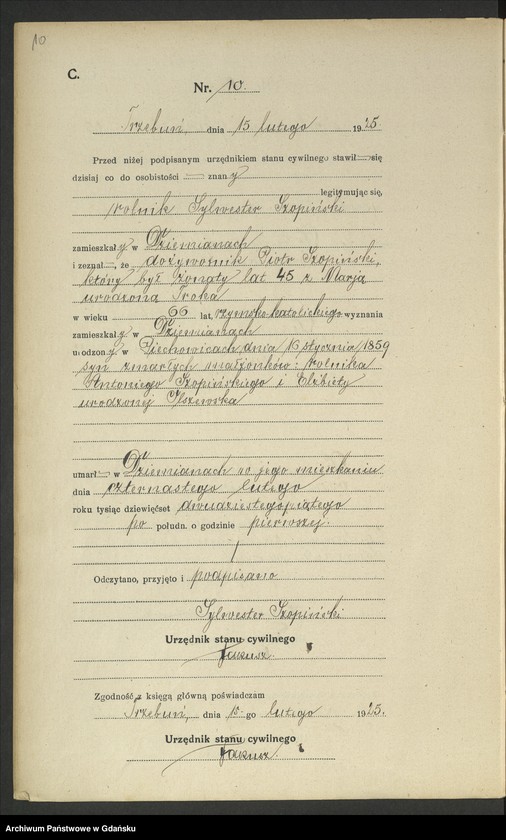 10
C.
Nr. 10.
Trzebuń, dnia 15 lutego 1925
Przed niżej podpisanym urzędnikiem stanu cywilnego stawił — się
dzisiaj co do osobistości — znany
legitymując się,
rolnik Sylwester Szopiński
zamieszkały w Dziemianach
i zeznał —, że dożywotnik Piotr Szopiński,
który był żonaty lat 45 z Marją
urodzoną Troka
w wieku 66 lat, rzymsko-katolickiego wyznania
zamieszkały w Dziemianach
urodzony w Piechowicach, dnia 16 stycznia 1859
syn zmarłych małżonków: rolnika
Antoniego Szopińskiego i Elżbiety
urodzonej
umarł — w Dziemianach w jego mieszkaniu
dnia czternastego lutego
roku tysiąc dziewięćset dwudziestegopiątego
po połudn. o godzinie pierwszej.
Odczytano, przyjęto i podpisano
Sylwester Szopiński
Urzędnik stanu cywilnego
Zgodność z księgą główną poświadczam
Trzebuń, dnia 15 go lutego 1925.
Urzędnik stanu cywilnego
Archiwum Państwowe w Gdańsku